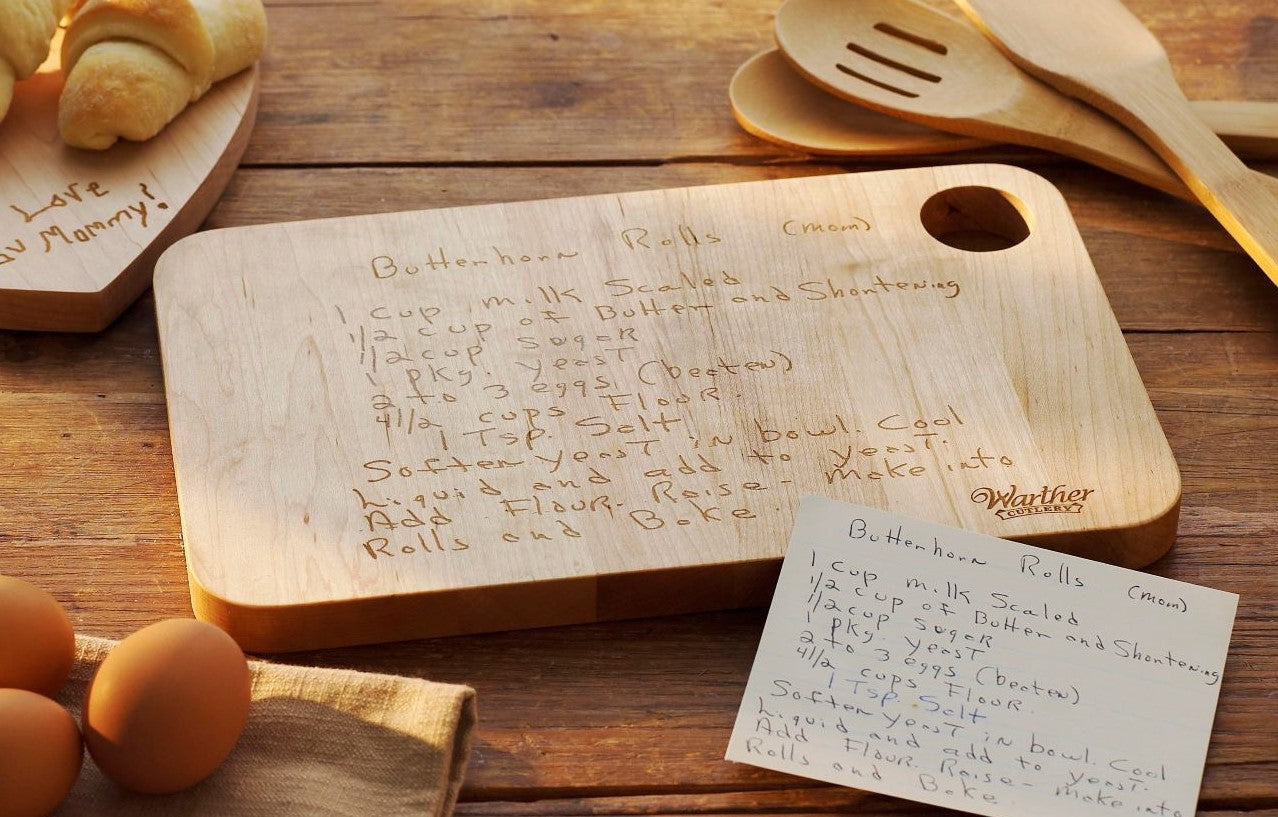 Love
Mommy!
Butterhorn Rolls (mom)
1 cup milk Scaled
1/2 cup of Butter and Shortening
1/2 cup sugar
1 pkg. yeast
2 to 3 eggs (beaten)
4 1/2 cups Flour.
1 Tsp. Salt
Soften yeast in bowl. Cool
Liquid and add to yeast.
Add Flour. Raise - make into
Rolls and Bake.
Warther
CUTLERY
Butterhorn Rolls (mom)
1 cup milk Scaled
1/2 cup of Butter and Shortening
1/2 cup sugar
1 pkg. yeast
2 to 3 eggs (beaten)
4 1/2 cups Flour.
1 Tsp. Salt
Soften yeast in bowl. Cool
Liquid and add to yeast.
Add Flour. Raise - make into
Rolls and Bake.